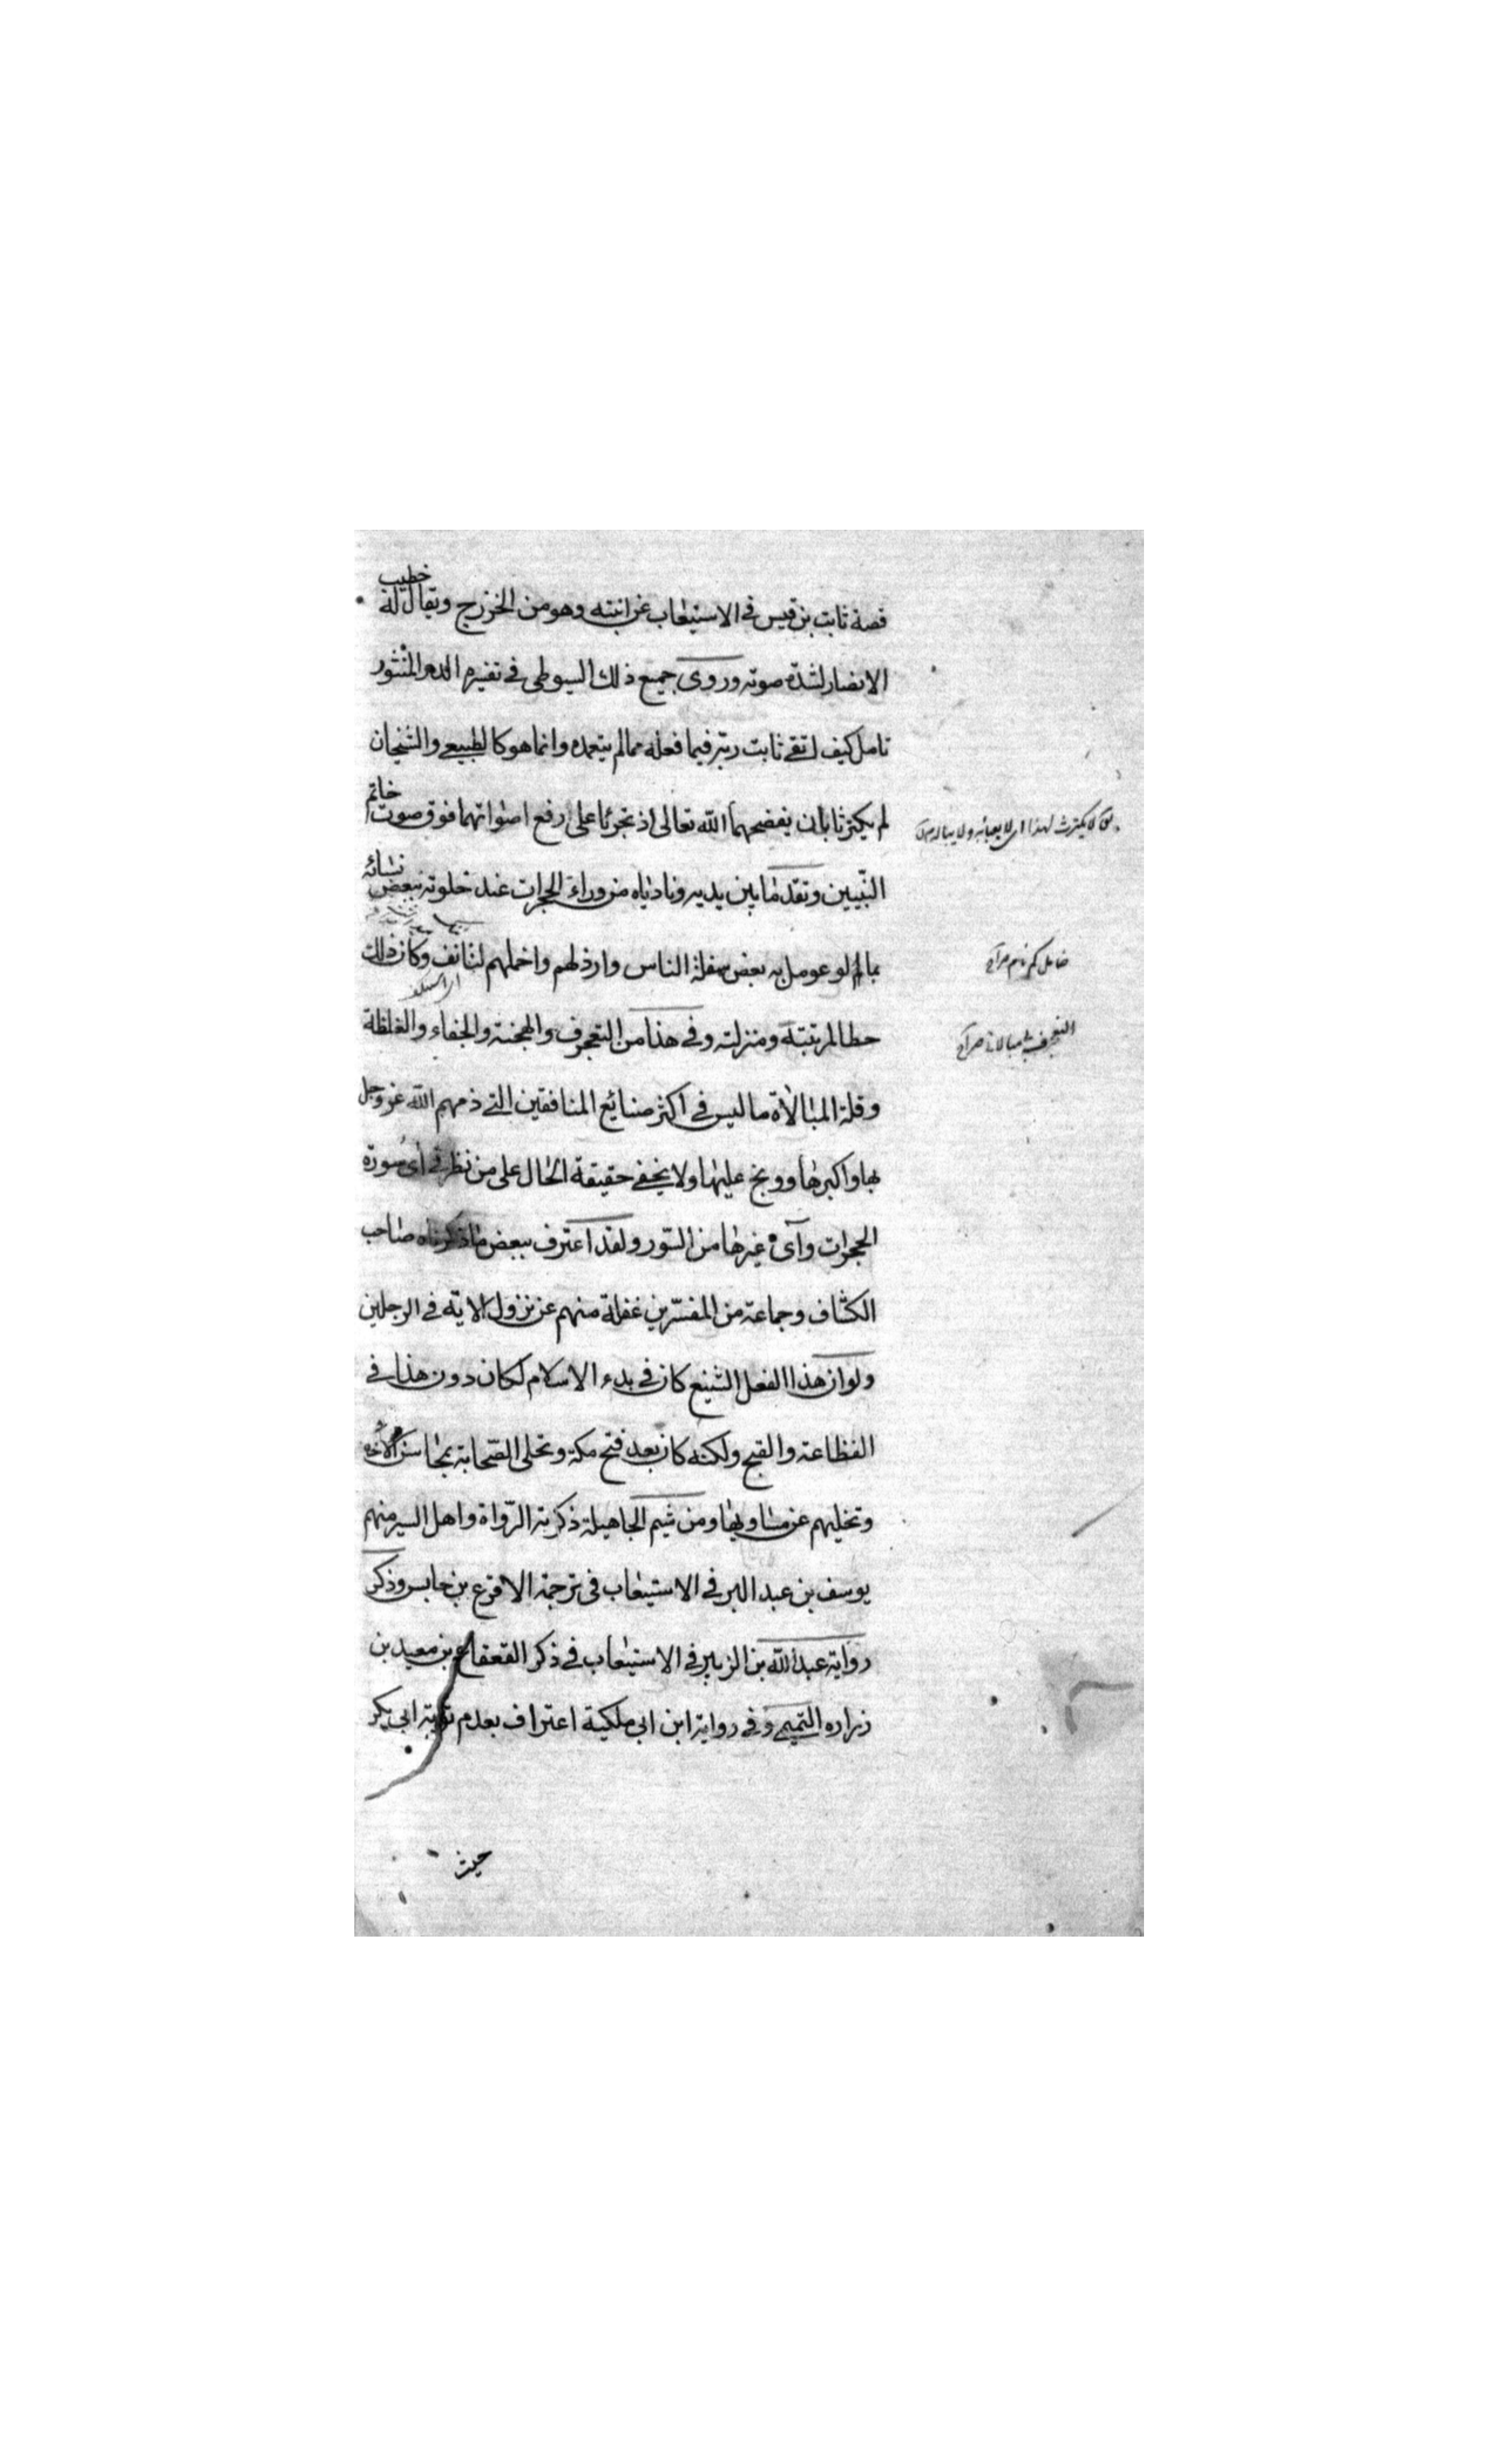 قصة ثابت بن قيس فى الاستيعاب عن ابنته وهو من الخزرج ويقال له خطيب
الانصار لشدة صوته وروى جميع ذلك السيوطى فى تفسيره الدر المنثور
تامل كيف اتقى ثابت ربّه فيما فعله مما لم يتعمده وانما هو كالطبيعى والشيخان
لم يكترثا بان يفضحهما الله تعالى اذ تجرئا على رفع اصواتهما فوق صوت خاتم
النّبيين وتقدما بين يديه وناديٰاه من وراء الحجرات عند خلوته ببعض نسٰائه
بما لو عومل به بعض سفلة الناس وارذلهم واخملهم لنانف وكان ذلك
حطا لمرتبته ومنزلته وفى هذا من التعجرف والهجنة والجفاء والغلظة
وقلة المبٰالاة ما ليس فى اكثر صنايع المنافقين التى ذمهم الله عز وجل
بها واكبرهٰا ووبخ عليهٰا ولا يخفى حقيقة الحٰال على من نظر فى اى سورة
الحجرات وآى غيرهٰا من السّور ولقد اعترف ببعض مٰا ذكرناه صٰاحب
الكشّاف وجماعة من المفسّرين غفلة منهم عن نزول الاية فى الرجلين
ولو ان هذا الفعل الشنيع كان فى بدء الاسلام لكان دون هذا فى
الفظاعة والقبح ولكنه كان بعد فتح مكة وتحلى الصّحابة بمحٰاسن الاخلاق
وتخليهم عن مسٰاويهٰا ومن شيم الجاهيلة ذكرته الرّواة واهل السير منهم
يوسف بن عبد البر فى الاستيعٰاب فى ترجمة الاقرع بن حابس وذكر
رواية عبد الله بن الزبير فى الاستيعٰاب فى ذكر القعقاع بن معبد بن
زراره التميمى وفى رواية ابن ابى ملكية اعتراف بعدم توبة ابى بكر
حيث
لا يكترث لهذا اى لا يعبأ به ولا يباليه
خامل كم نام